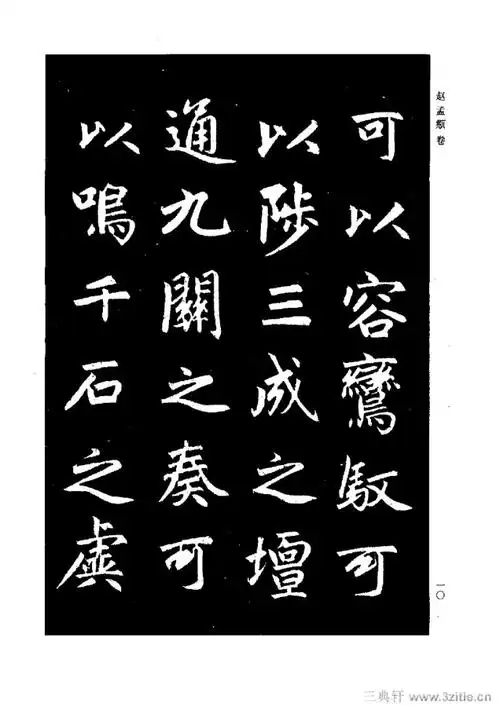 可以容鸞馭可
以陟三成之壇
通九關之奏可
以鳴千石之虡
赵孟頫 卷
一〇
三典轩 www.3zitie.cn